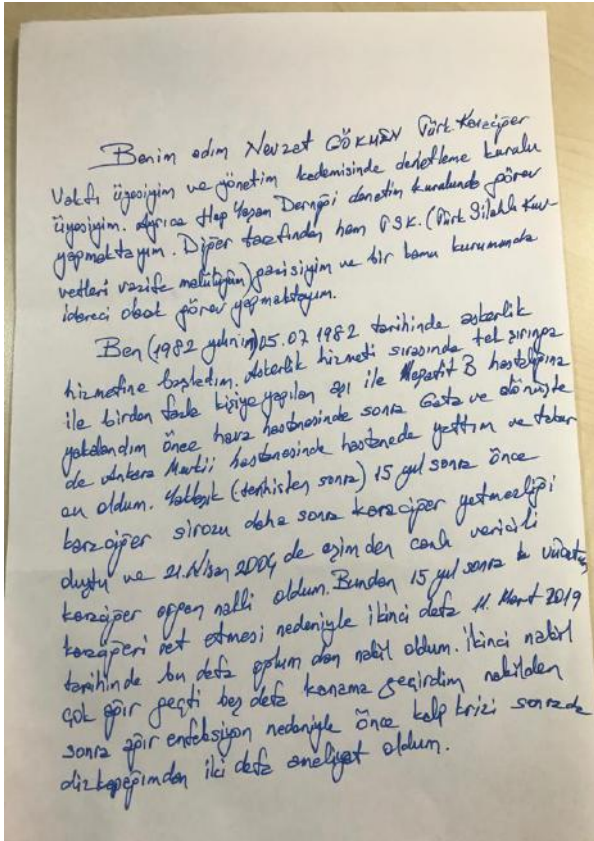 Benim adım Nevzat GÖKMEN Türk Karaciğer
Vakfı üyesiyim ve yönetim kademisinde denetleme kurulu
üyesiyim. Ayrıca Hep Yaşam Derneği denetim kurulunda görev
yapmaktayım. Diğer tarafından hem TSK. (Türk Silahlı Kuv-
vetleri vazife malulüyüm) gazisiyim ve bir kamu kurumunda
idareci olarak görev yapmaktayım.
Ben (1982 yılının) 05.07.1982 tarihinde askerlik
hizmetine başladım. Askerlik hizmeti sırasında tek şırınga
ile birden fazla kişiye yapılan aşı ile Hepatit B hastalığına
yakalandım önce hava hastanesinde sonra Gata ve dönüşte
de Ankara Mevkii hastanesinde hastanede yattım ve tabur
cu oldum. Yaklaşık (terhisten sonra) 15 yıl sonra önce
karaciğer sirozu daha sonra karaciğer yetmezliği
duştu ve 21.Nisan 2004 de eşimden canlı vericili
karaciğer organ nakli oldum. Bundan 15 yıl sonra bu vücudun
karaciğeri ret etmesi nedeniyle ikinci defa 11. Mart 2019
tarihinde bu defa oğlum dan nakil oldum. İkinci nakil
çok ağır geçti beş defa kanama geçirdim nakilden
sonra ağır enfeksiyon nedeniyle önce kalp krizi sonrada
dizkapağımdan iki defa ameliyat oldum.